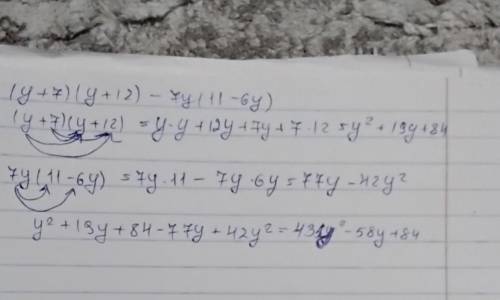 (y+7)(y+12) - 7y(11-6y)
(y+7)(y+12) = y·y+12y+7y+7·12=y²+19y+84
7y(11-6y) = 7y·11 - 7y·6y=77y-42y²
y²+19y+84-77y+42y²=43y²-58y+84